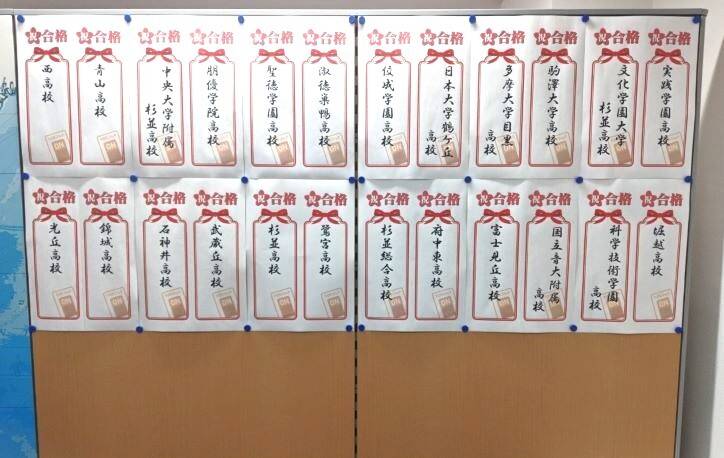 祝合格
西高校
祝合格
青山高校
祝合格
中央大学附属
杉並高校
祝合格
朋優学院高校
祝合格
聖徳学園高校
祝合格
淑徳巣鴨高校
祝合格
佼成学園高校
祝合格
日本大学鶴ケ丘
高校
祝合格
多摩大学目黒
高校
祝合格
駒澤大学高校
祝合格
文化学園大学
杉並高校
祝合格
実践学園高校
祝合格
光丘高校
祝合格
錦城高校
祝合格
石神井高校
祝合格
武蔵丘高校
祝合格
杉並高校
祝合格
鷺宮高校
祝合格
杉並総合高校
祝合格
府中東高校
祝合格
富士見丘高校
祝合格
国立音大附属
高校
祝合格
科学技術学園
高校
祝合格
堀越高校